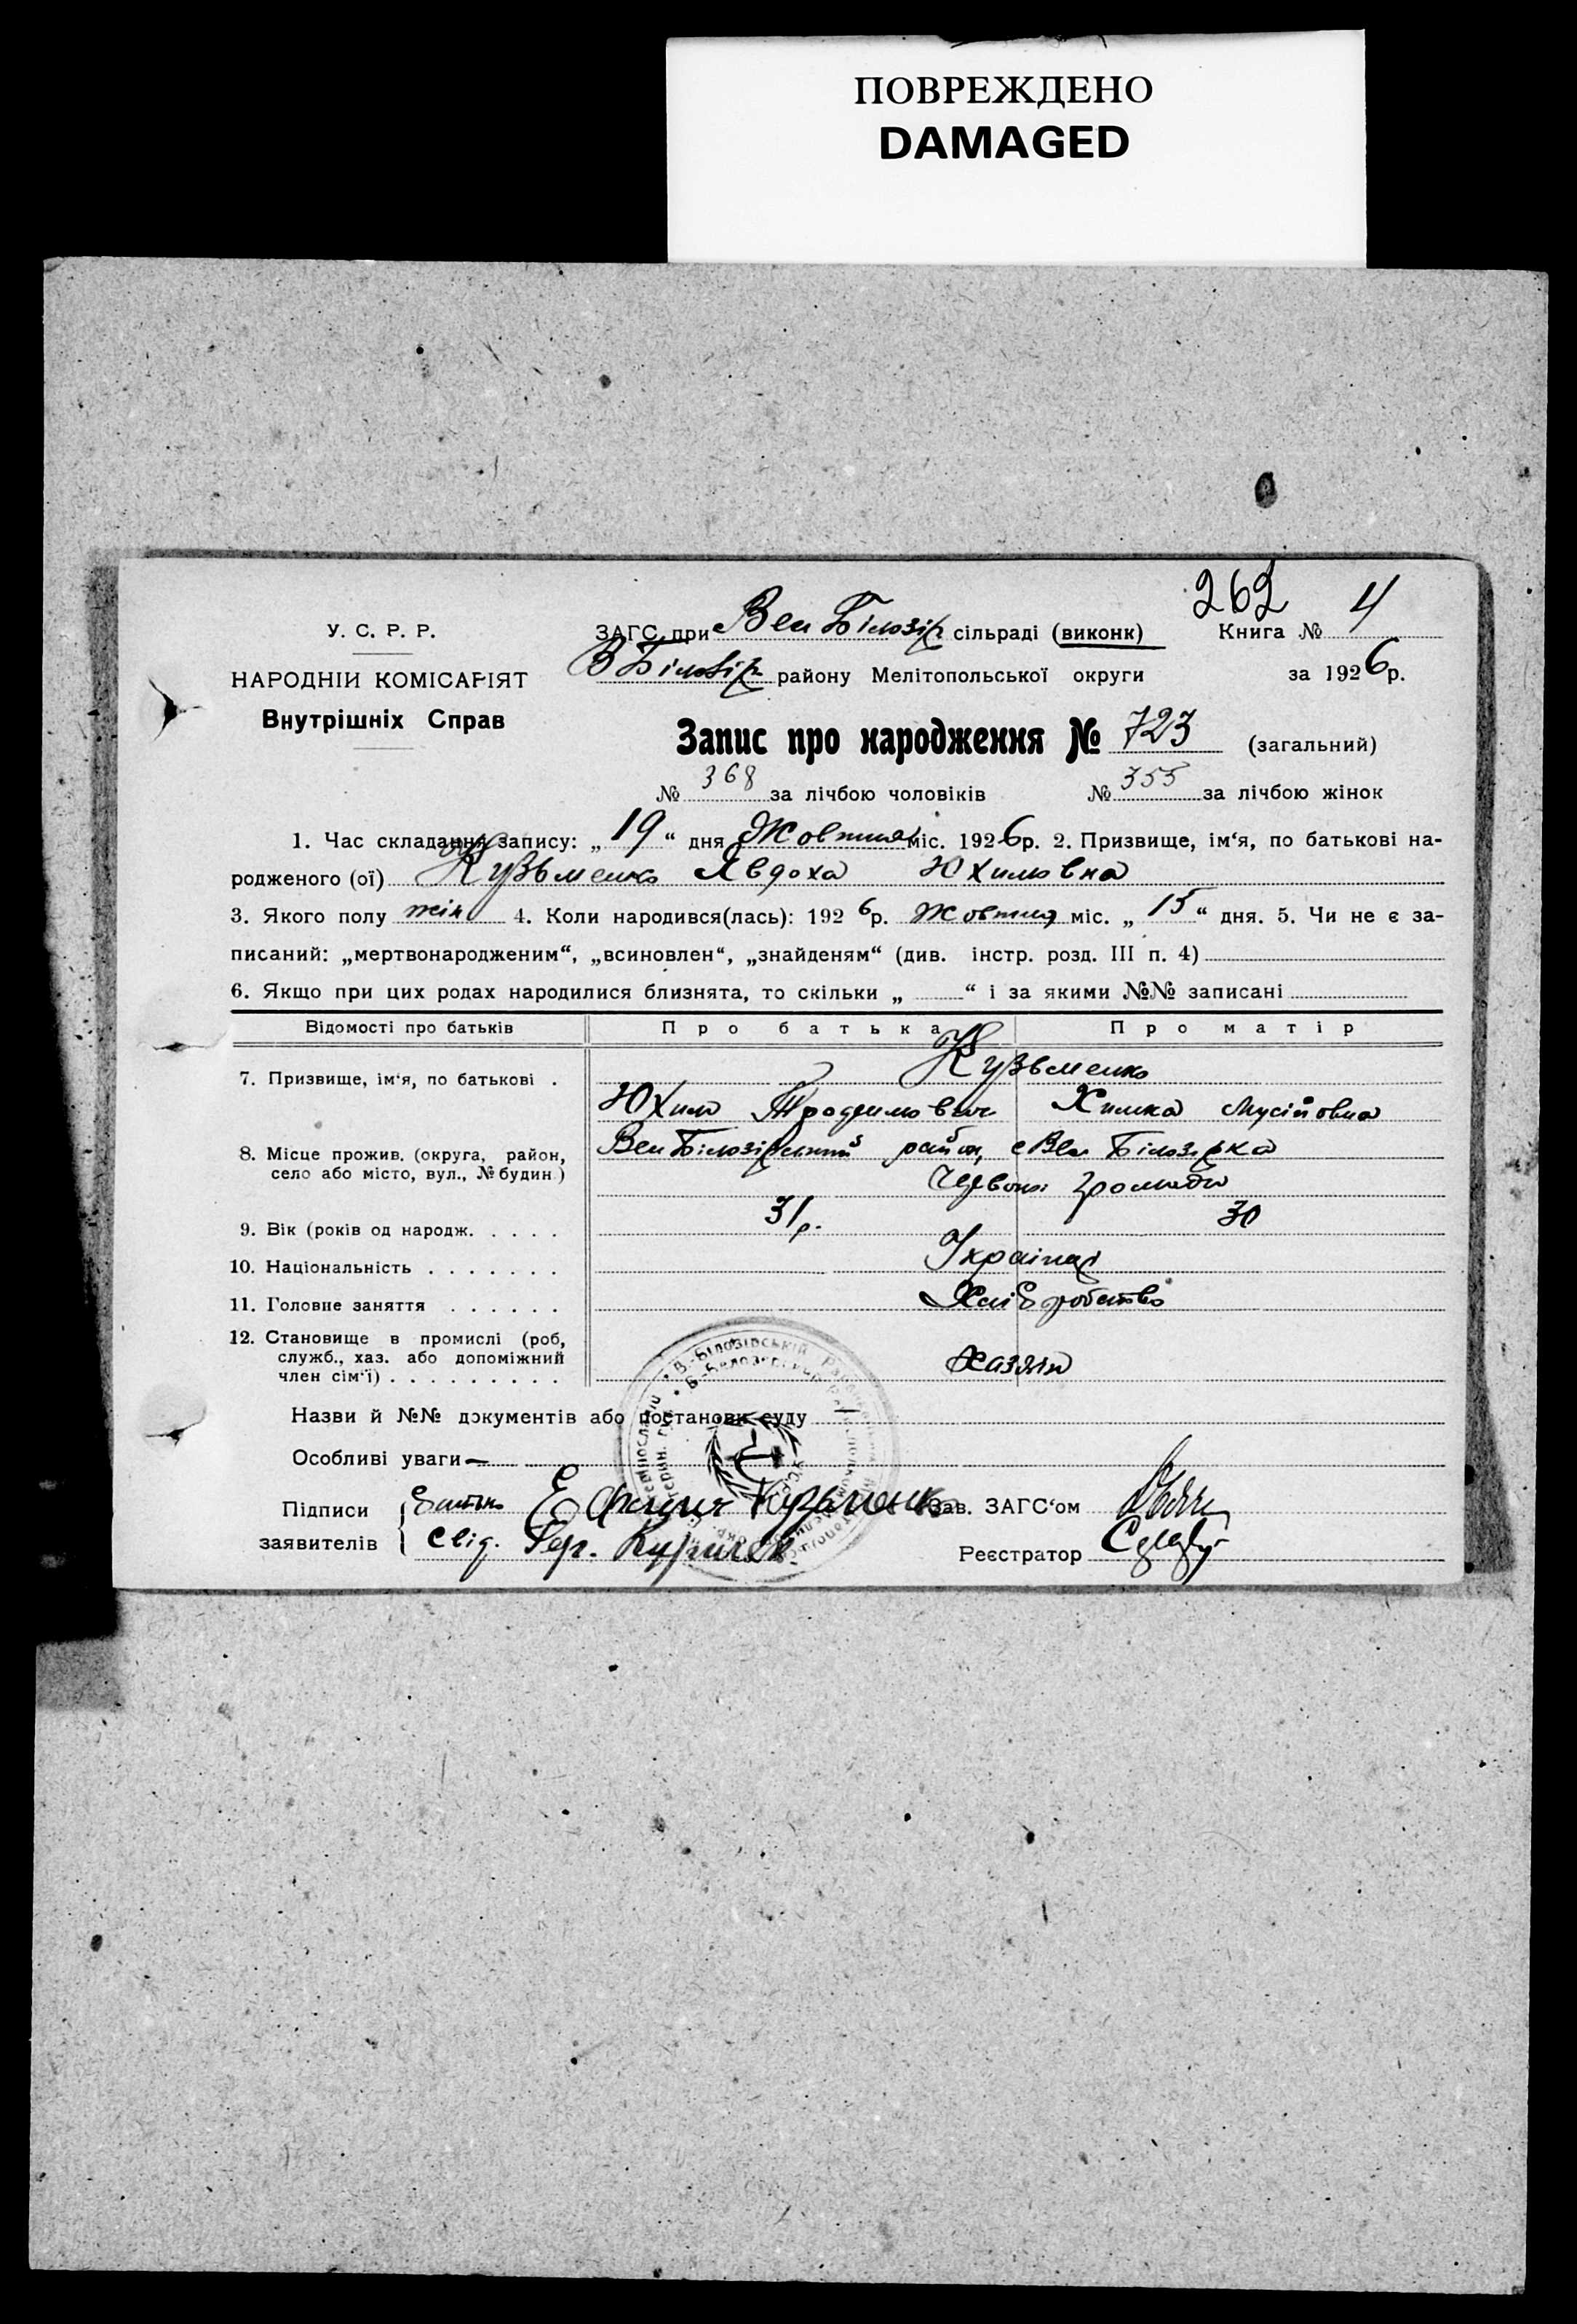 ПОВРЕЖДЕНО
DAMAGED
262 4
У. С. Р. Р. ЗАГС при Вел Білозір сільраді (виконк) Книга №
НАРОДНІЙ КОМІСАРІЯТ В Білозір району Мелітопольської округи за 1926 р.
Внутрішніх Справ
Запис про народження № 723 (загальний)
№ 368 за лічбою чоловіків № 355 за лічбою жінок
1. Час складання запису: „19“ дня Жовтня міс. 1926 р. 2. Призвище, ім‘я, по батькові на-
родженого (ої) Кузьменко Явдоха Юхимовна
3. Якого полу жін 4. Коли народився(лась): 1926 р. Жовтня міс. „15“ дня. 5. Чи не є за-
писаний: „мертвонародженим“, „всиновлен“, „знайденям“ (див. інстр. розд. III п. 4)
6. Якщо при цих родах народилися близнята, то скільки „ “ і за якими №№ записані
Відомості про батьків Про батька Про матір
7. Призвище, ім‘я, по батькові . Кузьменко
Юхим Трохимович Химка Мусійовна
8. Місце прожив. (округа, район, Вел Білозірський район, с Вел Білозірка
село або місто, вул., № будин.) Червоної Громади
9. Вік (років од народж. . . . . 31 р. 30
10. Національність . . . . . . . Українці
11. Головне заняття . . . . . . Хліборобство
12. Становище в промислі (роб,
служб., хаз. або допоміжний Хазяїн
член сім‘ї) . . . . . . . . .
Назви й №№ документів або постанови суду —
Особливі уваги —
Підписи Батько Кузьменко Зав. ЗАГС‘ом
заявителів свід. Реєстратор